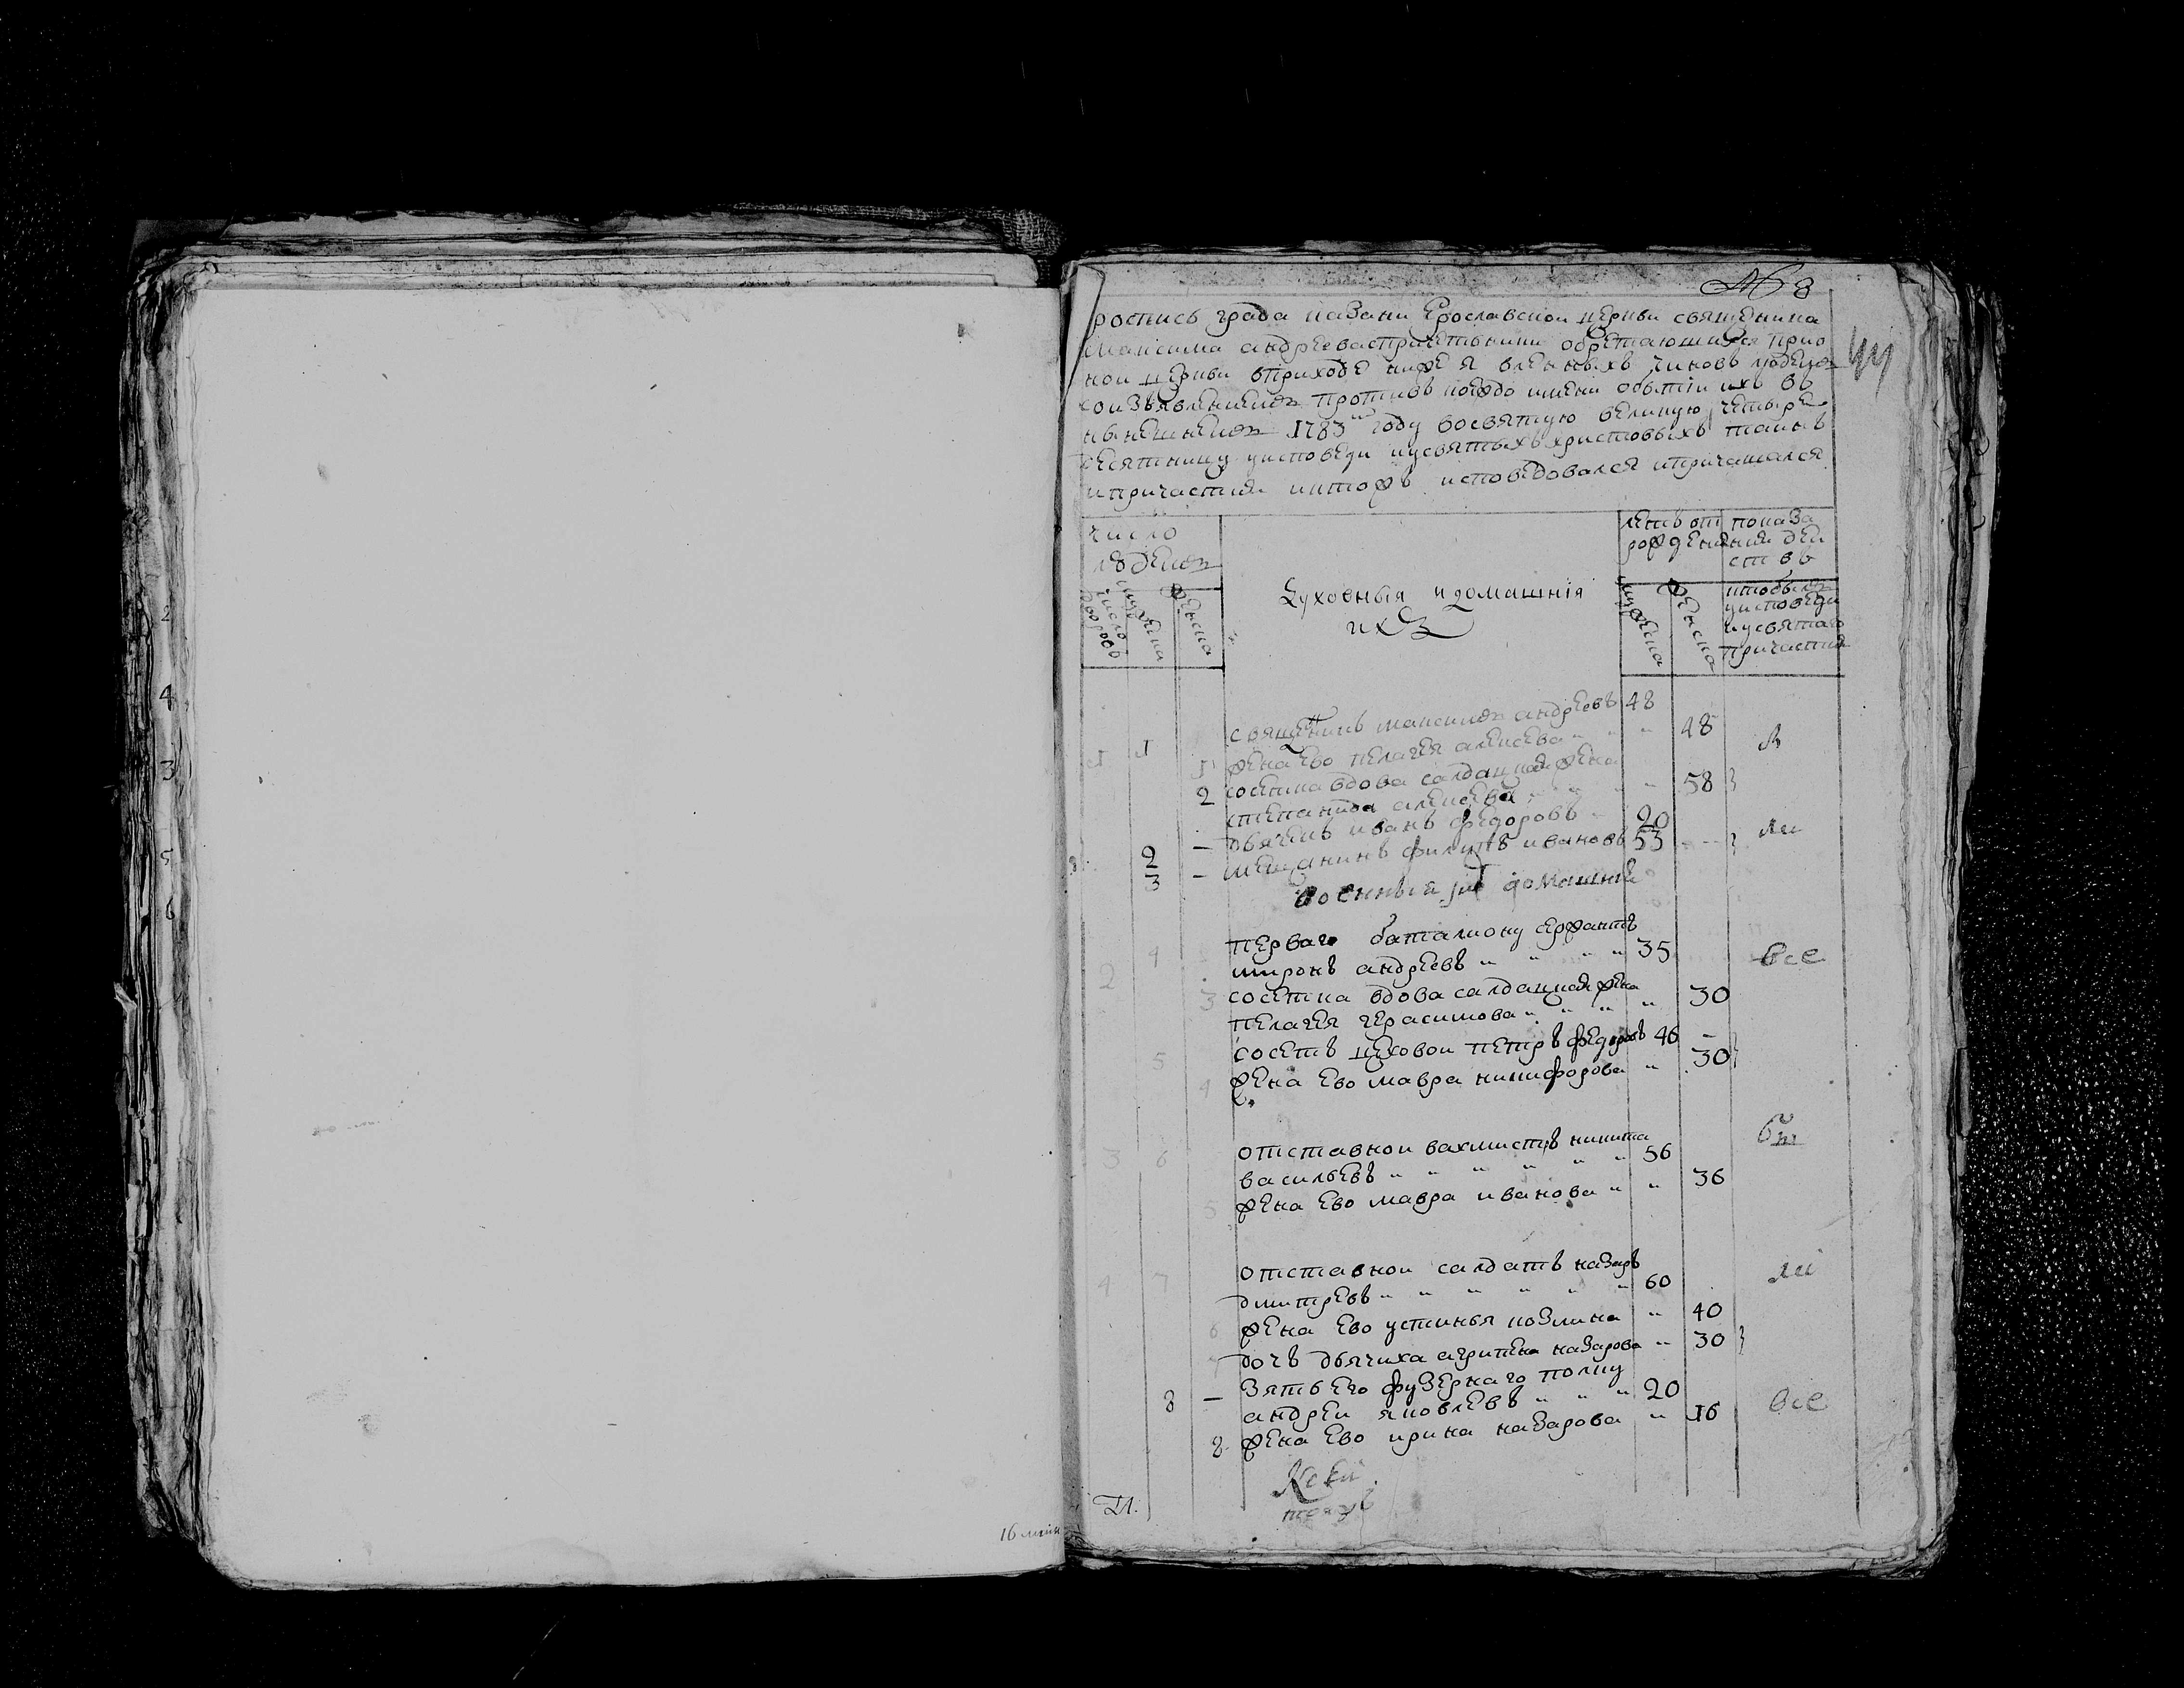 № 8
44
роспись града казани Ерославской церкви священника
максима андреева спричетники обретающихся при о
ной церкви вприходе ниже явленныхъ чиновъ людеи
соизъявлениемъ противъ коегождо имени о бытіи ихъ въ
нынешнемъ 1783м году восвятую великую четыре
десятницу уисповеди иусвятыхъ христовыхъ таинъ
ипричастия иктожъ исповедовался ипричащался
число
людеи
летъ от рождения
показа
ния деи
ствъ
число дворовъ
мужеска
женска
Духовныя и домашнія
ихъ
мужеска
женска
ктобылъ
уисповеди
иусвятаго
причастия
1 1 священникъ максимъ андреевъ 48
1 жена ево пелагея алексева " " " 48
2 сосетка вдова салдацкая жена
степанида алексева " " 58
2 — дьячекъ иванъ федоровъ - 20
3 — мещанинъ филипъ ивановъ 53
военныя и домашния
перваго баталиону сержантъ
2 4 миронъ андреевъ " " " " 35 все
3 сосетка вдова салдацкая жена
пелагея герасимова " " " " 30
5 сосетъ цеховои петръ федоровъ 46 -
4 жена ево мавра никифорова " 30
3 6 отставнои вахмистръ никита
васильевъ " " " " " " 56
5 жена ево мавра иванова " " 36
4 7 отставнои салдатъ назаръ
дмитревъ " " " " " " 60
6 жена ево устинья козмина " 40
7 дочь дьячиха агрипена назарова " 30
зять его фузернаго полку
8 — андреи яковлевъ " " " 20 все
8 жена ево ирина назарова " 16